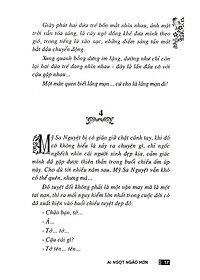 Giây phút hai đứa trẻ bốn mắt nhìn nhau, ánh mặt
trời vẫn tỏa sáng, lá cây ngô đồng khẽ đưa mình theo
gió, trong tiếng lá xào xạc, những điểm sáng tản mát
bắt đầu chuyển động.
Xung quanh bỗng dưng im lặng, dường như chỉ còn
lại hai đứa trẻ đang nhìn nhau - đây là lần đầu có với
cô gặp nhau...
Một màn quen biết lãng mạn... cứ cho là lãng mạn đi!
4
Mỹ Sa Nguyệt bị cô giáo giữ chặt cánh tay, khi đó
cô không hiểu là xảy ra chuyện gì, chỉ ngốc
nghếch nhìn cái người xinh đẹp kia, cảm giác
mình đã gặp được thiên thần trong buổi chiều ấm áp
này. Cho dù tới nhiều năm sau, Mỹ Sa Nguyệt vẫn không
có thể quên, nhưng mà...
Đó tuyệt đối không phải là một vận may mà là một tai
nạn, thì ra mỗi nguy hiểm lớn nhất trong cuộc đời cô
đã xuất hiện vào buổi chiều tuyệt đẹp đó.
- Chào bạn, tớ...
- Á...
- Tớ... tớ...
- Cậu cái gì?
- Tớ tên... tên...
AI NGỌT NGÀO HƠN
17